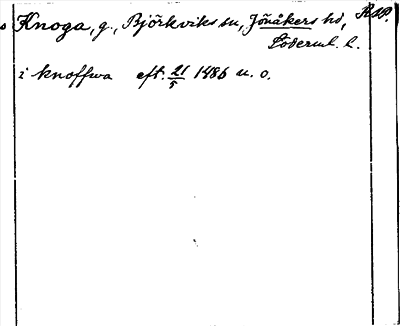 Knoga, g., Björkviks sn, Jönåkers hd,
Söderml. l.
i knoffwa eft. 21/5 1486 u. o.